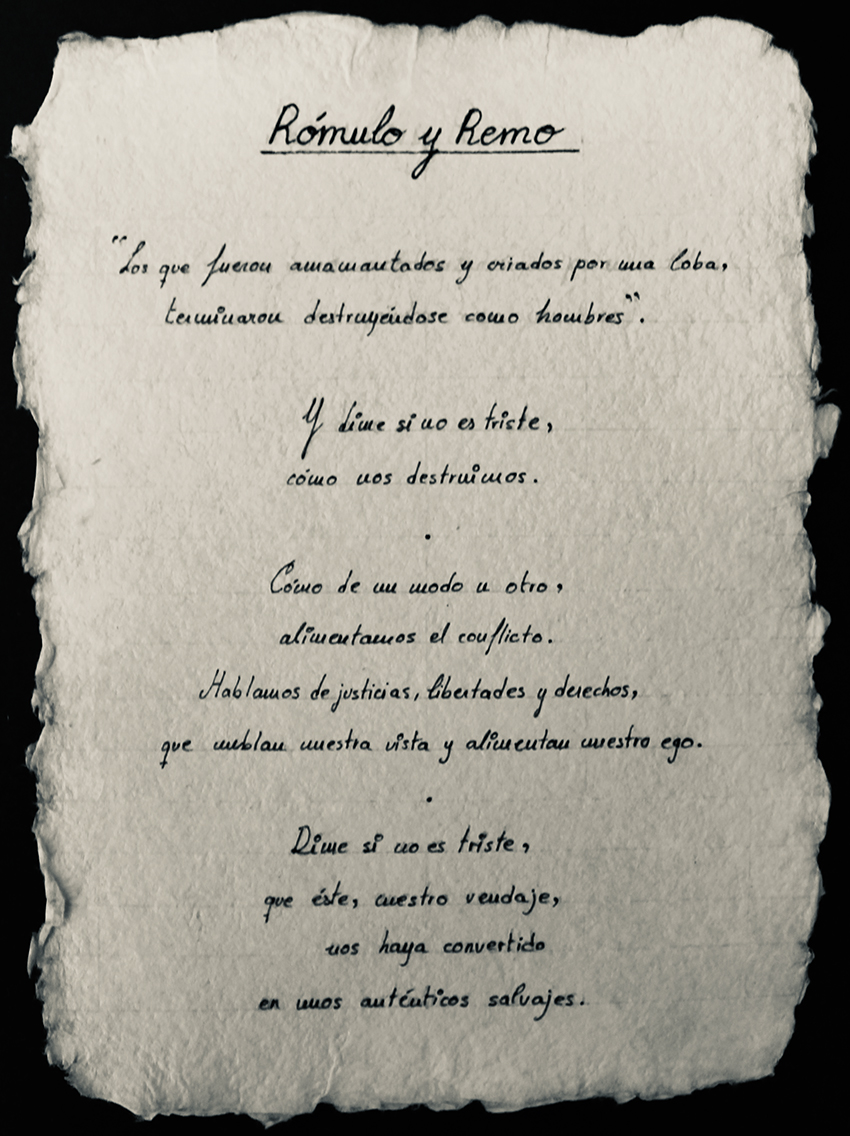 Rómulo y Remo
"Los que fueron amamantados y criados por una loba,
terminaron destruyéndose como hombres".
Y dime si no es triste,
cómo nos destruimos.
.
Cómo de un modo u otro,
alimentamos el conflicto.
Hablamos de justicias, libertades y derechos,
que nublan nuestra vista y alimentan nuestro ego.
.
Dime si no es triste,
que éste, nuestro vendaje,
nos haya convertido
en unos auténticos salvajes.